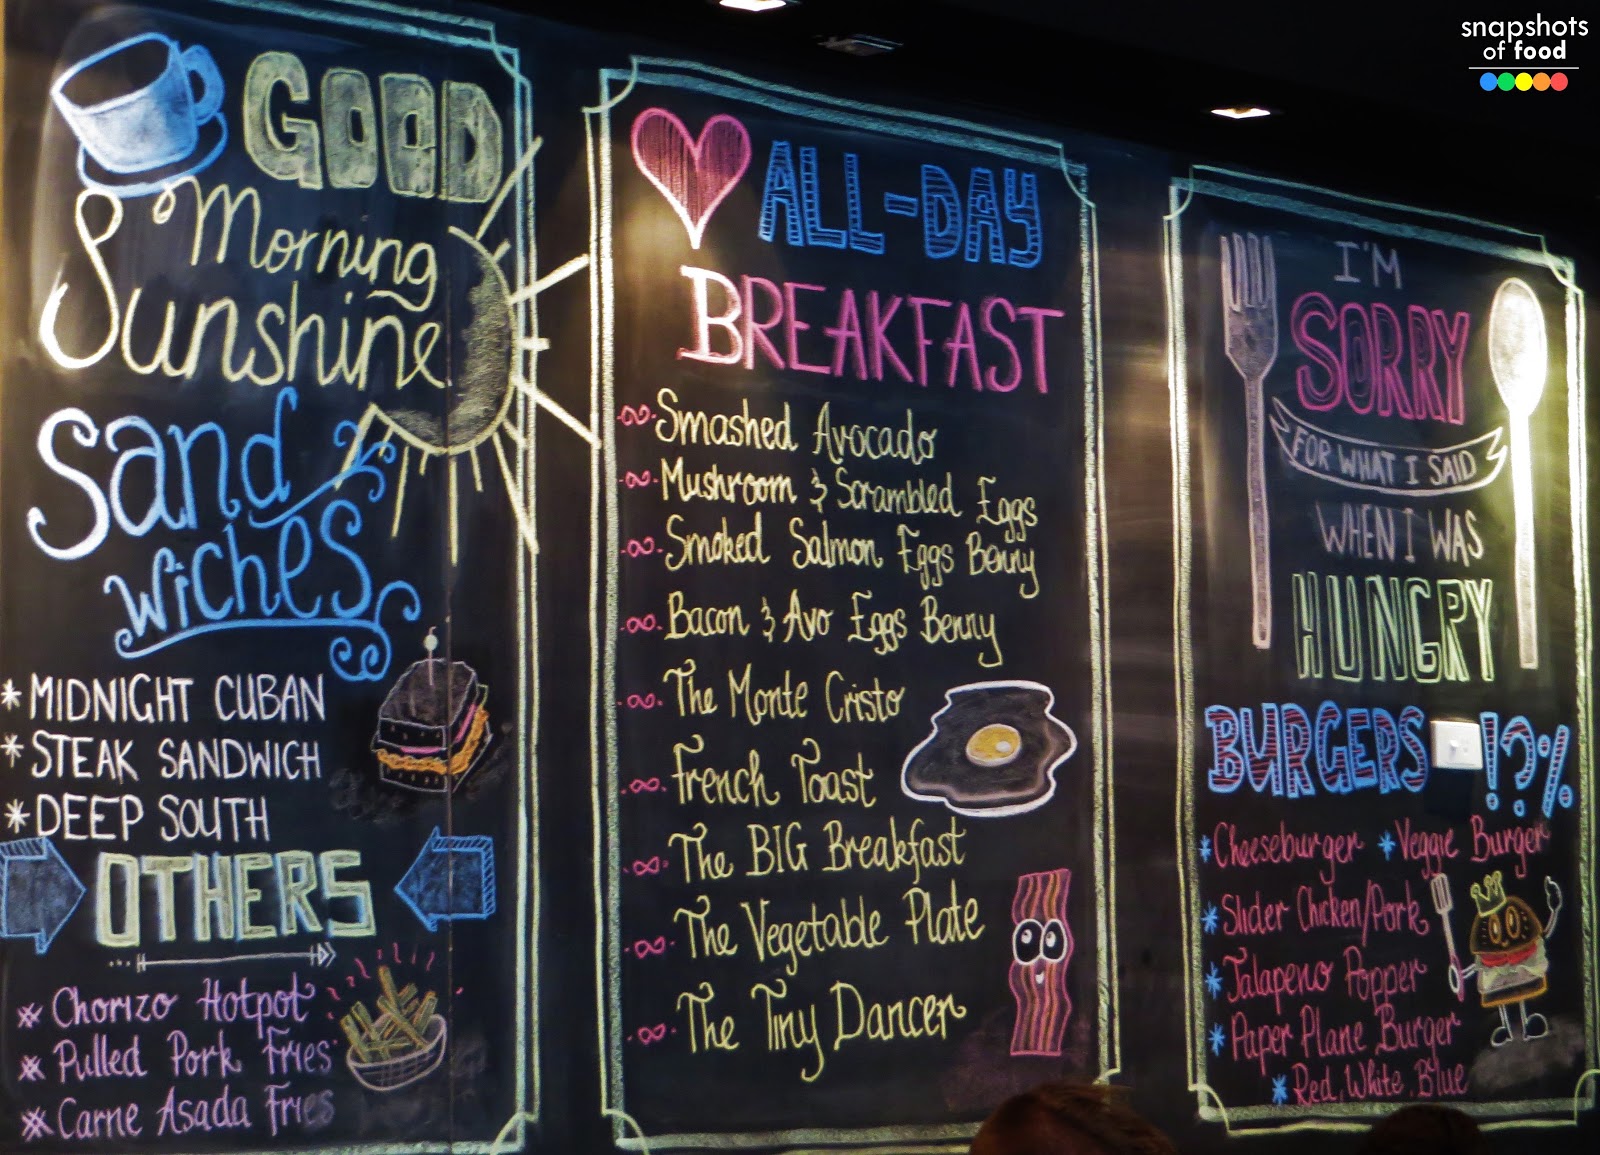 GOOD
Morning
Sunshine
Sand
wiches
* MIDNIGHT CUBAN
* STEAK SANDWICH
* DEEP SOUTH
OTHERS
Chorizo Hotpot
Pulled Pork Fries
Carne Asada Fries
ALL-DAY
BREAKFAST
Smashed Avocado
Mushroom & Scrambled Eggs
Smoked Salmon Eggs Benny
Bacon & Avo Eggs Benny
The Monte Cristo
French Toast
The BIG Breakfast
The Vegetable Plate
The Tiny Dancer
I'M
SORRY
FOR WHAT I SAID
WHEN I WAS
HUNGRY
BURGERS !?%
* Cheeseburger * Veggie Burger
* Slider Chicken/Pork
* Jalapeno Popper
* Paper Plane Burger
* Red, White, Blue
snapshots
of food